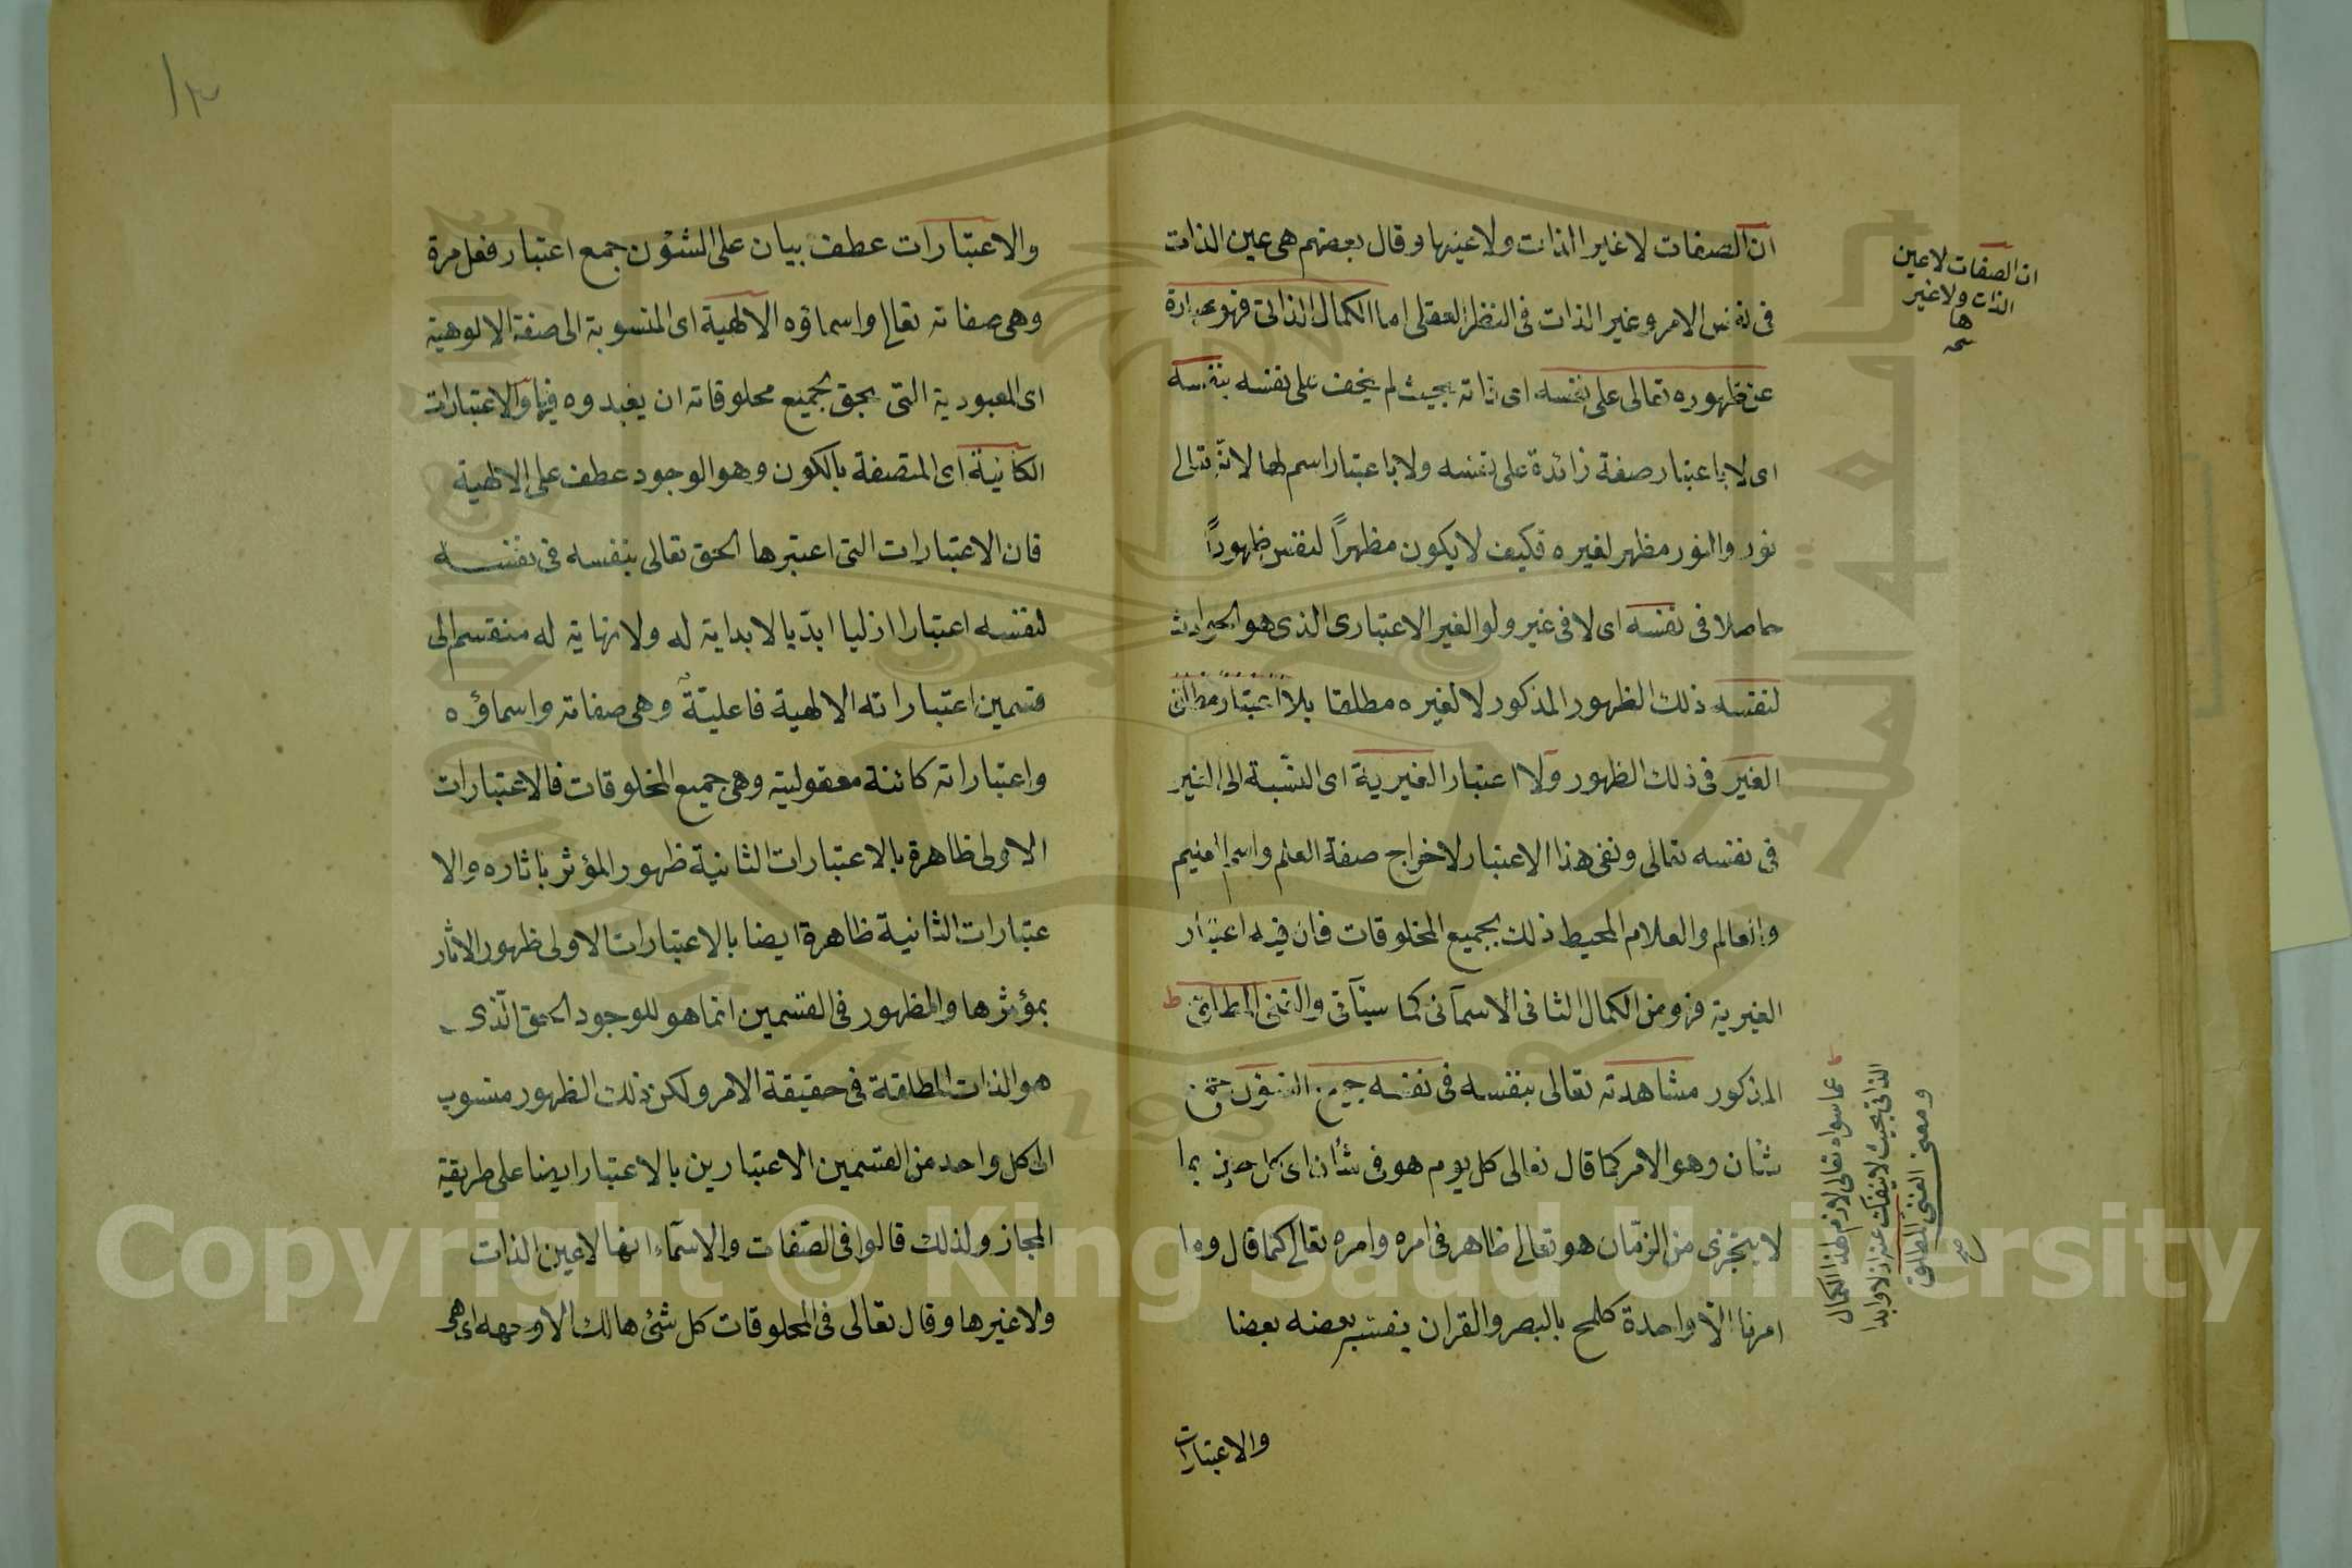 ان الصفات لا غير الذات ولا عينها وقال بعضهم هى عين الذات
فى نفس الامر وغير الذات فى النظر العقلى اما الكمال الذاتى فهو عبارة
عن ظهوره تعالى على نفسه اى ذاته بحيث لم يخف على نفسه بنفسه
اى لا باعتبار صفة زائدة على نفسه ولا باعتبار اسم لها لانه تعالى
نور والنور مظهر لغيره فكيف لا يكون مظهرًا لنفس ظهورًا
حاصلا فى نفسه اى لا فى غير ولو الغير الاعتبارى الذى هو الحوادث
لنفسه ذلك الظهور المذكور لا لغيره مطلقا بلا اعتبار مطلق
الغير فى ذلك الظهور ولا اعتبار الغيرية اى النسبة الى الغير
فى نفسه تعالى ونفى هذا الاعتبار لاخراج صفة العلم واسم العليم
والعالم والعلام المحيط ذلك بجميع المخلوقات فان فيه اعتبار
الغيرية فهو من الكمال الثانى الاسمآئى كما سيأتى والغنى المطلق ط
المذكور مشاهدته تعالى بنفسه فى نفسه جميع الشؤن جمع
شان وهو الامر كما قال تعالى كل يوم هو فى شأن اى كل حين بما
لا يتجزى من الزمان هو تعالى ظاهر فى امره وامره تعالى كما قال وما
امرنا الا واحدة كلمح بالبصر والقران يفسر بعضه بعضا
والاعتبارات
ان الصفات لا عين
الذات ولا غير
ها
صح
ط عما سواه تعالى لازم لهذا الكمال
الذاتى بحيث لا ينفك عنه ازلا وابدا
ومعنى الغنى المطلق
صح
١٣
والاعتبارات عطف بيان على الشؤن جمع اعتبار فعل مرة
وهى صفاته تعالى واسماؤه الالهية اى المنسوبة الى صفة الالوهية
اى المعبودية التى بحق لجميع مخلوقاته ان يعبدوه فيها والاعتبارات
الكانية اى المتصفة بالكون وهو الوجود عطف على الالهية
فان الاعتبارات التى اعتبرها الحق تعالى بنفسه فى نفسه
لنفسه اعتبارا ازليا ابديا لا بداية له ولا نهاية له منقسم الى
قسمين اعتباراته الالهية فاعلية وهى صفاته واسماؤه
واعتباراته كائنة معقولية وهى جميع المخلوقات فالاعتبارات
الاولى ظاهرة بالاعتبارات الثانية ظهور المؤثر باثاره والا
عتبارات الثانية ظاهرة ايضا بالاعتبارات الاولى ظهور الاثار
بمؤثرها والظهور فى القسمين انما هو للوجود الحق الذى
هو الذات المطلقة فى حقيقة الامر ولكن ذلك الظهور منسوب
الى كل واحد من القسمين الاعتبارين بالاعتبار ايضا على طريقة
المجاز ولذلك قالوا فى الصفات والاسمآء انها لا عين الذات
ولا غيرها وقال تعالى فى المخلوقات كل شئ هالك الا وجهه اى هى
Copyright © King Saud University